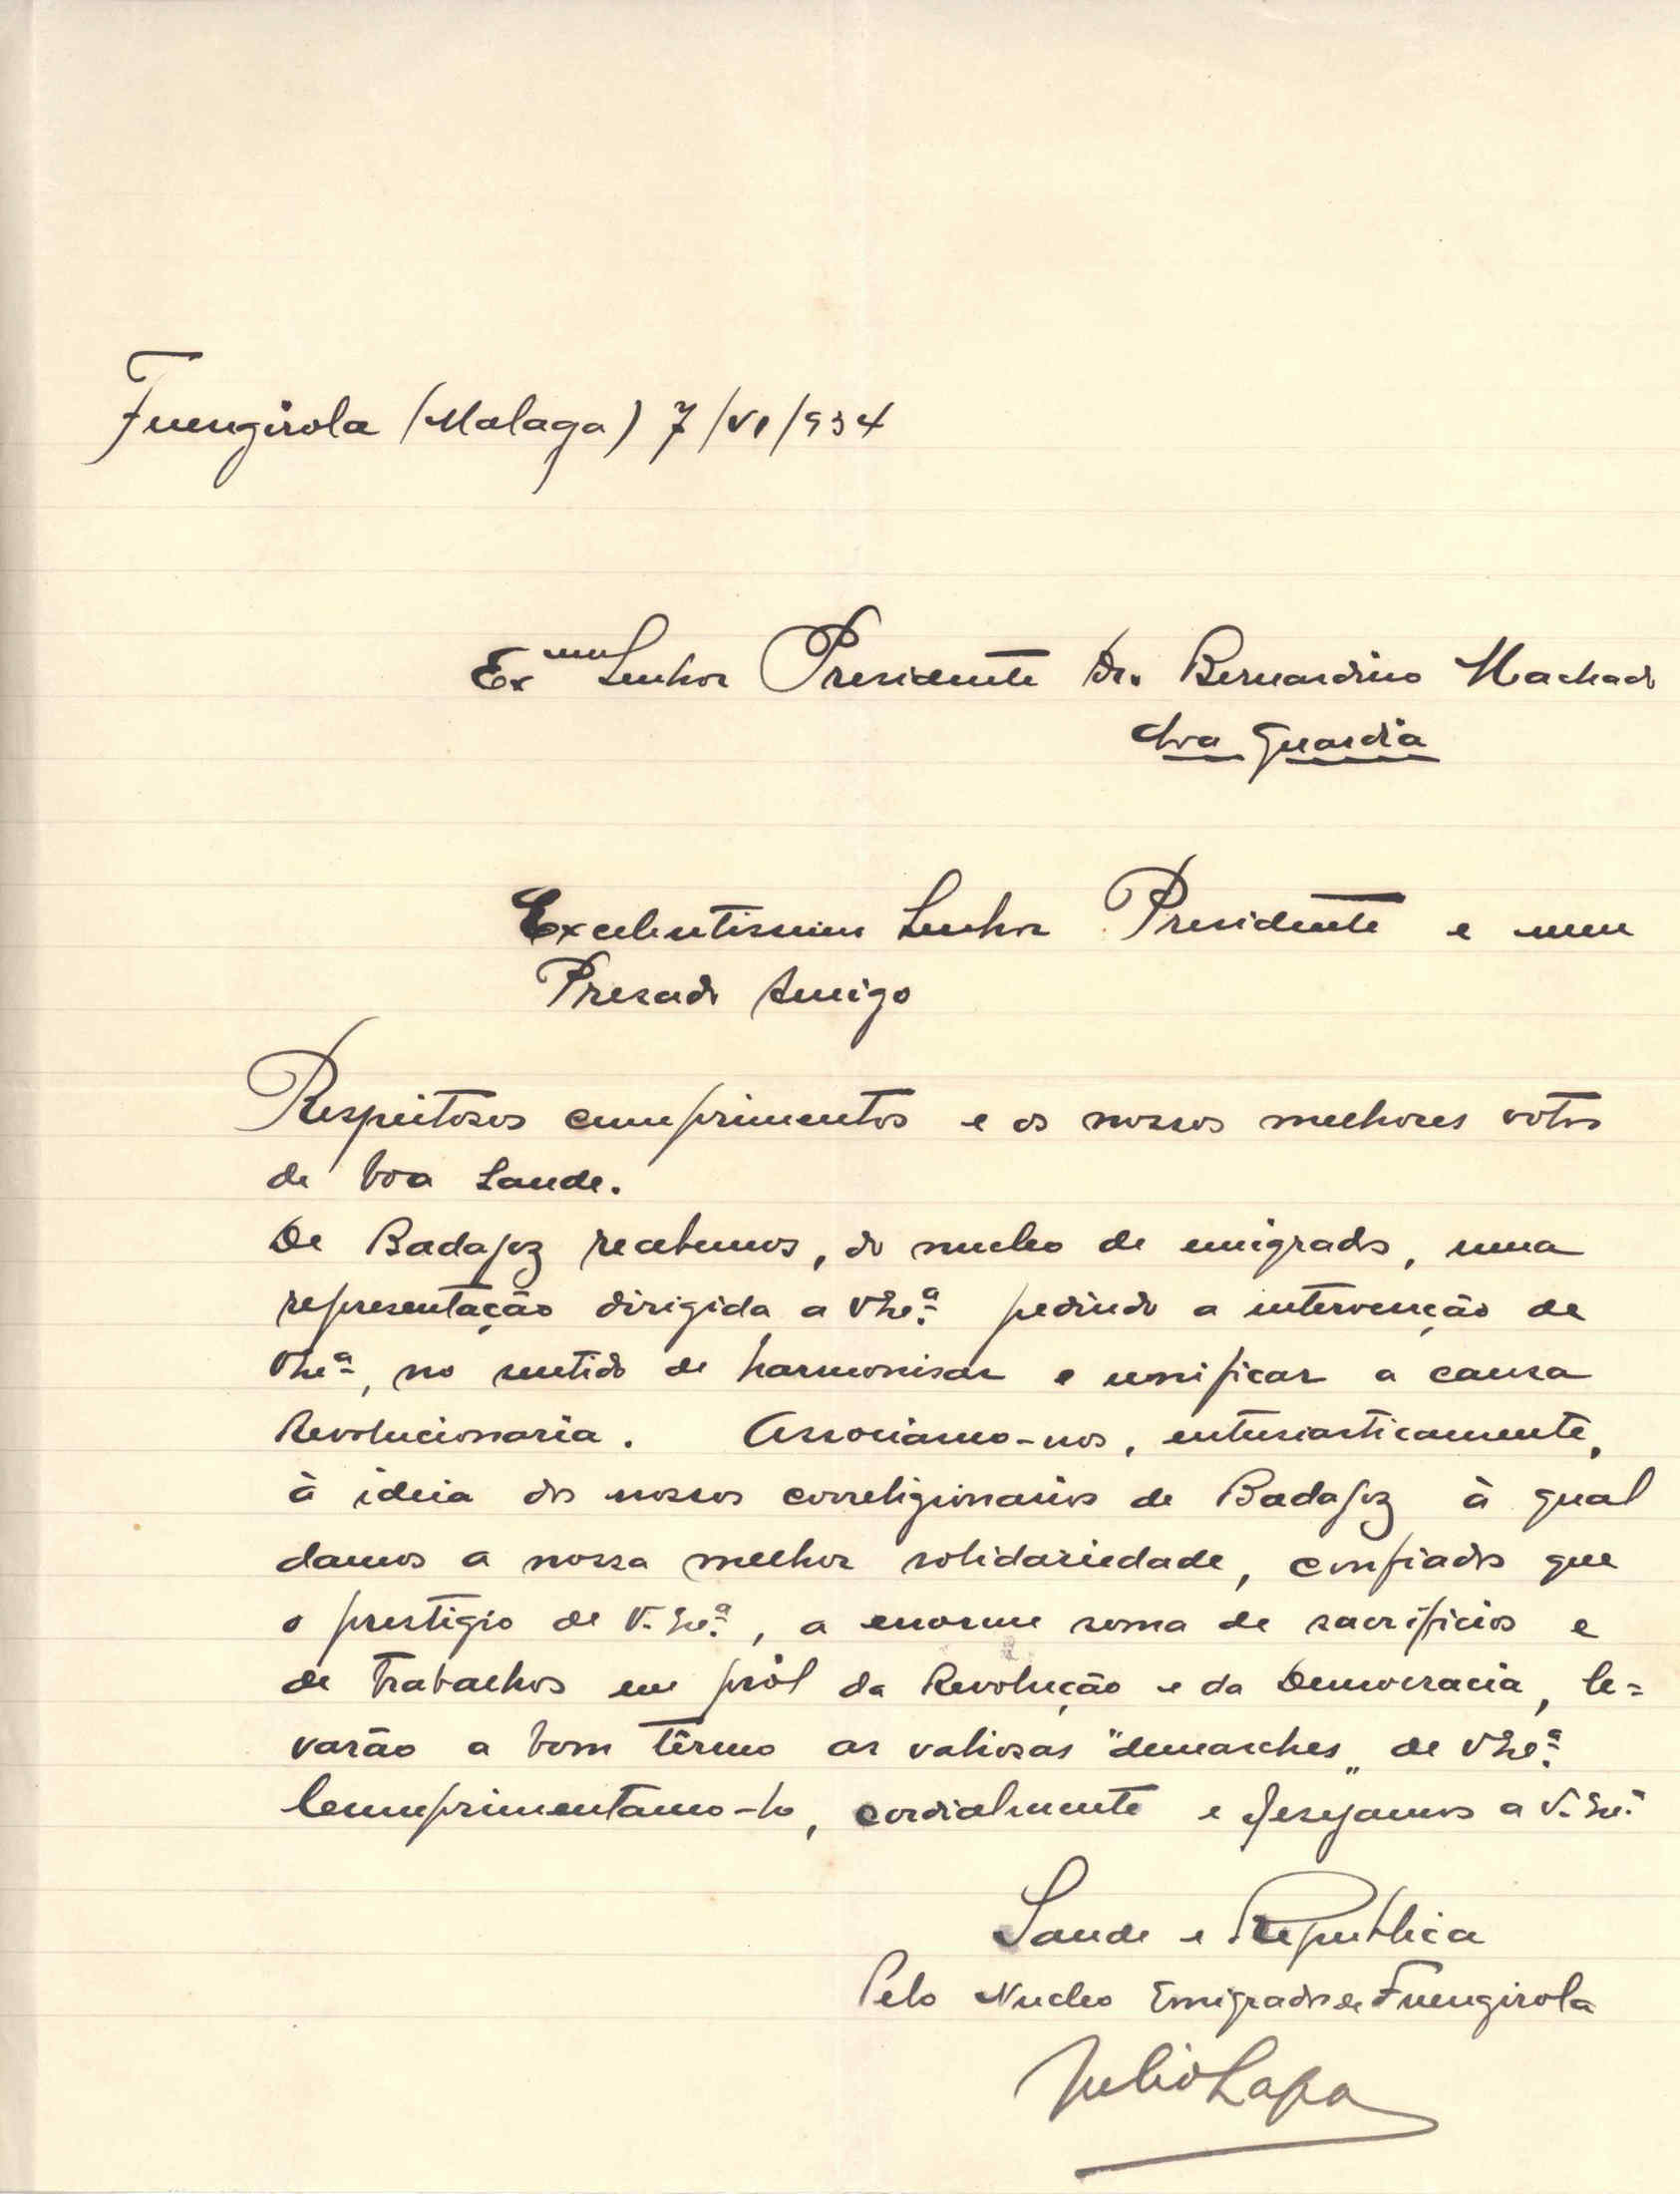 Fuengirola (Malaga) 7/VI/934
Exmo Senhor Presidente Dr. Bernardino Machado
La Guardia
Excelentissimo Senhor Presidente e meu
Presado Amigo
Respeitosos cumprimentos e os nossos melhores votos
de boa saude.
De Badajoz recebemos, do nucleo de emigrados, uma
representação dirigida a VExª pedindo a intervenção de
VExª, no sentido de harmonisar e unificar a causa
Revolucionaria. Associamo-nos, entusiasticamente,
à ideia dos nossos correligionarios de Badajoz à qual
damos a nossa melhor solidariedade, confiados que
o prestigio de V. Exª, a enorme soma de sacrificios e
de trabalhos em pról da Revolução e da Democracia, le=
varão a bom têrmo as valiosas "demarches" de VExª.
Cumprimentamo-lo, cordialmente e desejamos a V. Exª
Saude e Republica
Pelo Nucleo Emigrados de Fuengirola
Julio Lapa